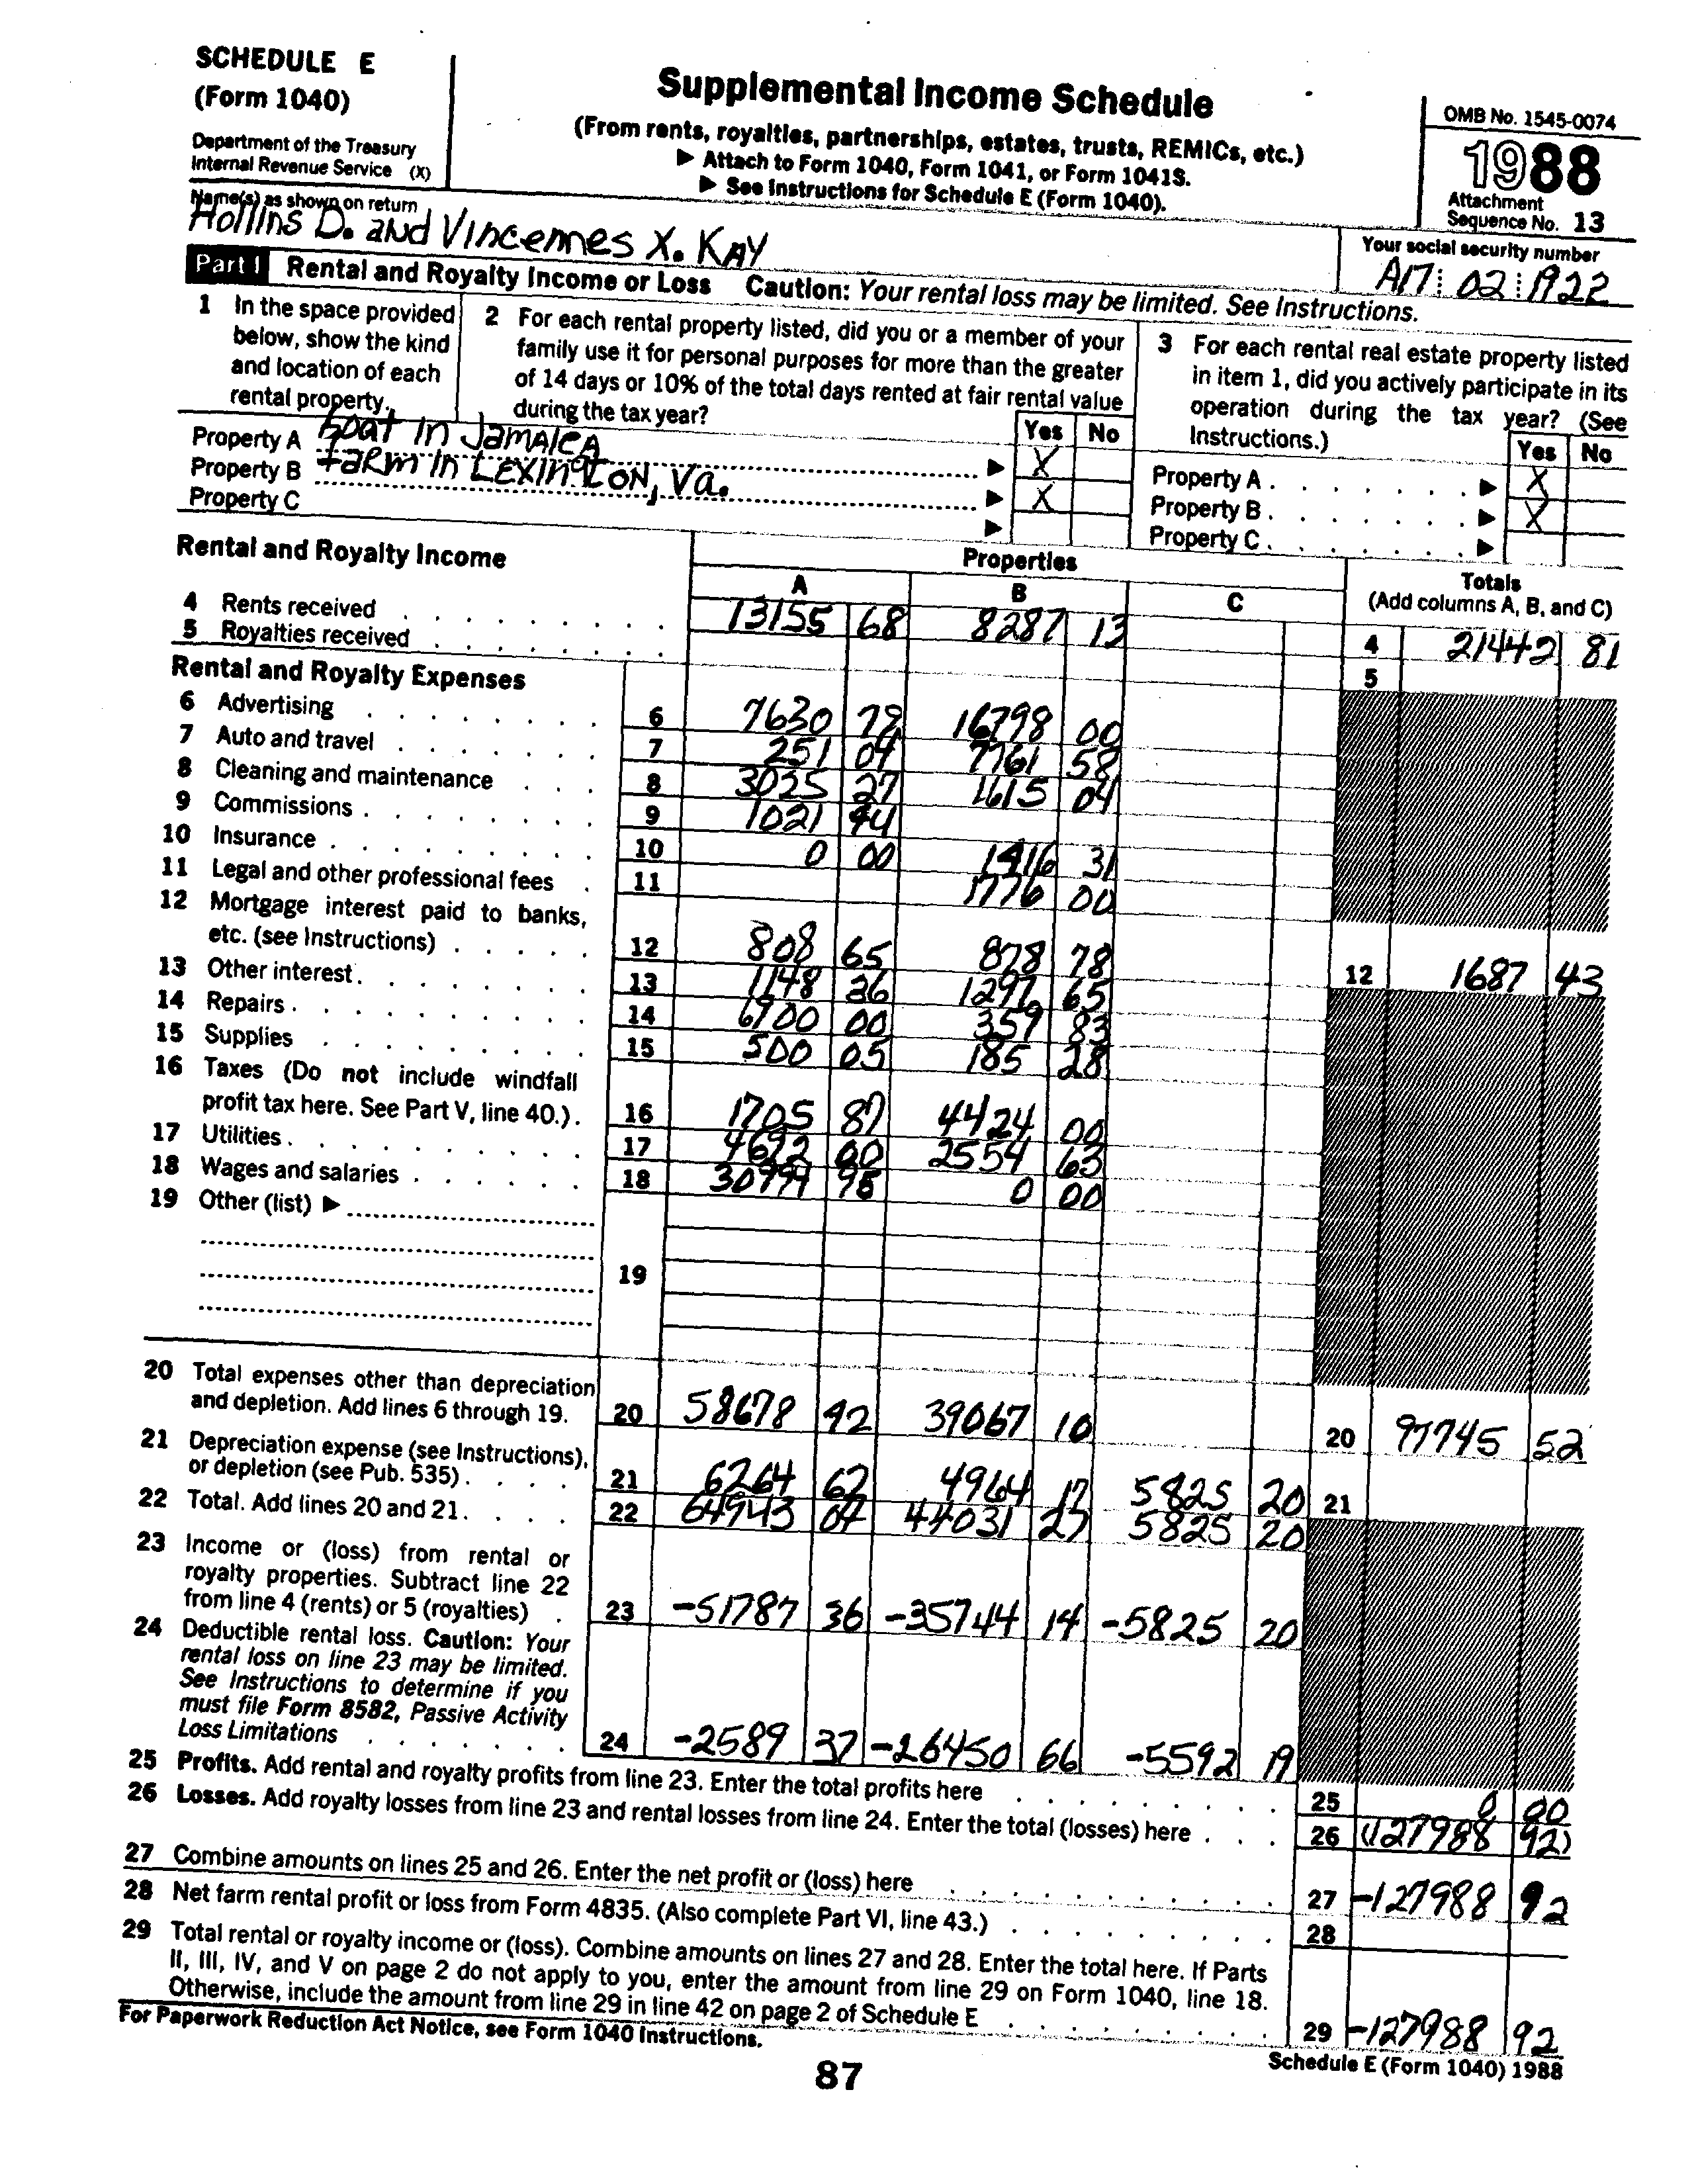 SCHEDULE E
(Form 1040)
Department of the Treasury
Internal Revenue Service (X)
Supplemental Income Schedule
(From rents, royalties, partnerships, estates, trusts, REMICs, etc.)
▶ Attach to Form 1040, Form 1041, or Form 1041S.
▶ See Instructions for Schedule E (Form 1040).
OMB No. 1545-0074
1988
Attachment
Sequence No. 13
Name(s) as shown on return
Hollins D. and Vincennes X. KAY
Your social security number
A17 02 1922
Part I Rental and Royalty Income or Loss Caution: Your rental loss may be limited. See Instructions.
1 In the space provided
below, show the kind
and location of each
rental property.
2 For each rental property listed, did you or a member of your
family use it for personal purposes for more than the greater
of 14 days or 10% of the total days rented at fair rental value
during the tax year?
Yes No
3 For each rental real estate property listed
in item 1, did you actively participate in its
operation during the tax year? (See
Instructions.)
Yes No
Property A Boat in Jamaica ▶ X
Property B Farm in LEXINGTON, Va. ▶ X
Property C ▶
Property A . . . . . . . ▶ X
Property B . . . . . . . ▶ X
Property C . . . . . . . ▶
Rental and Royalty Income
Properties
A B C
Totals
(Add columns A, B, and C)
4 Rents received 13155 68 8287 13 4 21442 81
5 Royalties received 5
Rental and Royalty Expenses
6 Advertising 6 7630 78 16798 00
7 Auto and travel 7 251 04 7761 58
8 Cleaning and maintenance 8 3025 27 1615 04
9 Commissions 9 1021 94
10 Insurance 10 0 00 1416 31
11 Legal and other professional fees 11 1776 00
12 Mortgage interest paid to banks,
etc. (see Instructions) 12 808 65 878 78 12 1687 43
13 Other interest 13 1148 36 1297 65
14 Repairs 14 6900 00 359 83
15 Supplies 15 500 05 185 28
16 Taxes (Do not include windfall
profit tax here. See Part V, line 40.) 16 1705 87 4424 00
17 Utilities 17 4692 00 2554 63
18 Wages and salaries 18 30994 98 0 00
19 Other (list) ▶
19
20 Total expenses other than depreciation
and depletion. Add lines 6 through 19. 20 58678 42 39067 10 20 97745 52
21 Depreciation expense (see Instructions),
or depletion (see Pub. 535) 21 6264 62 4964 17 5825 20 21
22 Total. Add lines 20 and 21 22 64943 04 44031 27 5825 20
23 Income or (loss) from rental or
royalty properties. Subtract line 22
from line 4 (rents) or 5 (royalties) 23 -51787 36 -35744 14 -5825 20
24 Deductible rental loss. Caution: Your
rental loss on line 23 may be limited.
See Instructions to determine if you
must file Form 8582, Passive Activity
Loss Limitations 24 -2589 37 -26450 66 -5592 19
25 Profits. Add rental and royalty profits from line 23. Enter the total profits here 25 0 00
26 Losses. Add royalty losses from line 23 and rental losses from line 24. Enter the total (losses) here 26 (127988 92)
27 Combine amounts on lines 25 and 26. Enter the net profit or (loss) here 27 -127988 92
28 Net farm rental profit or loss from Form 4835. (Also complete Part VI, line 43.) 28
29 Total rental or royalty income or (loss). Combine amounts on lines 27 and 28. Enter the total here. If Parts
II, III, IV, and V on page 2 do not apply to you, enter the amount from line 29 on Form 1040, line 18.
Otherwise, include the amount from line 29 in line 42 on page 2 of Schedule E 29 -127988 92
For Paperwork Reduction Act Notice, see Form 1040 Instructions.
Schedule E (Form 1040) 1988
87